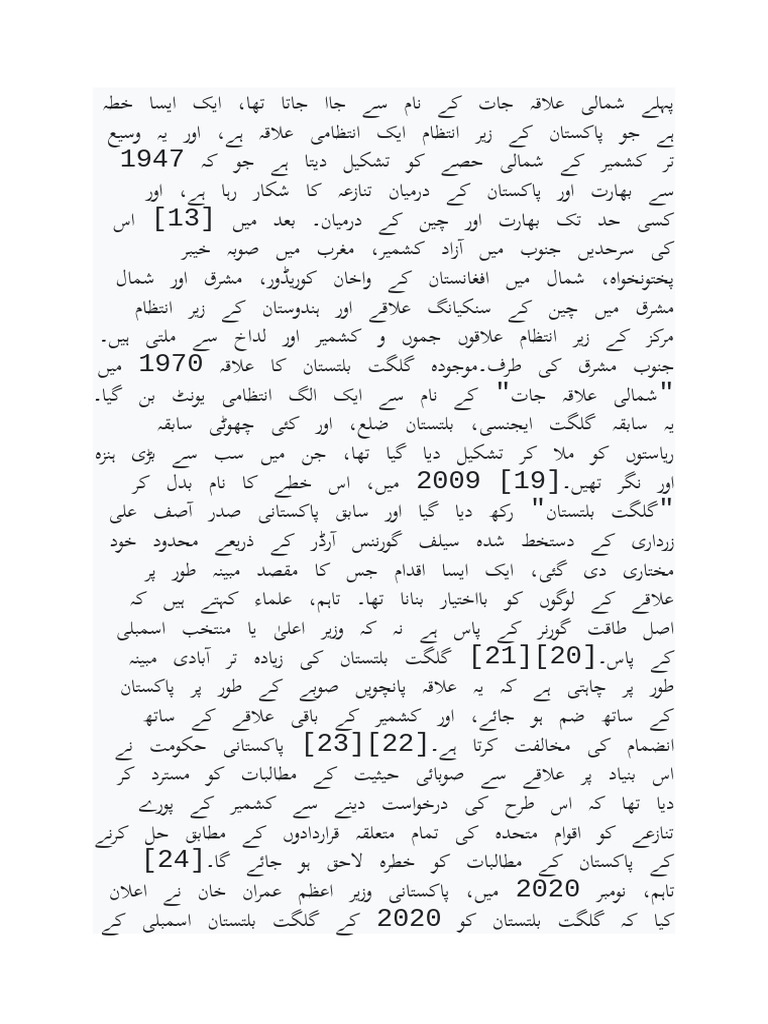 پہلے شمالی علاقہ جات کے نام سے جاا جاتا تھا، ایک ایسا خطہ
ہے جو پاکستان کے زیر انتظام ایک انتظامی علاقہ ہے، اور یہ وسیع
تر کشمیر کے شمالی حصے کو تشکیل دیتا ہے جو کہ 1947
سے بھارت اور پاکستان کے درمیان تنازعہ کا شکار رہا ہے، اور
کسی حد تک بھارت اور چین کے درمیان۔ بعد میں [13] اس
کی سرحدیں جنوب میں آزاد کشمیر، مغرب میں صوبہ خیبر
پختونخواہ، شمال میں افغانستان کے واخان کوریڈور، مشرق اور شمال
مشرق میں چین کے سنکیانگ علاقے اور ہندوستان کے زیر انتظام
مرکز کے زیر انتظام علاقوں جموں و کشمیر اور لداخ سے ملتی ہیں۔
جنوب مشرق کی طرف۔موجودہ گلگت بلتستان کا علاقہ 1970 میں
"شمالی علاقہ جات" کے نام سے ایک الگ انتظامی یونٹ بن گیا۔
یہ سابقہ گلگت ایجنسی، بلتستان ضلع، اور کئی چھوٹی سابقہ
ریاستوں کو ملا کر تشکیل دیا گیا تھا، جن میں سب سے بڑی ہنزہ
اور نگر تھیں۔[19] 2009 میں، اس خطے کا نام بدل کر
"گلگت بلتستان" رکھ دیا گیا اور سابق پاکستانی صدر آصف علی
زرداری کے دستخط شدہ سیلف گورننس آرڈر کے ذریعے محدود خود
مختاری دی گئی، ایک ایسا اقدام جس کا مقصد مبینہ طور پر
علاقے کے لوگوں کو بااختیار بنانا تھا۔ تاہم، علماء کہتے ہیں کہ
اصل طاقت گورنر کے پاس ہے نہ کہ وزیر اعلیٰ یا منتخب اسمبلی
کے پاس۔[20][21] گلگت بلتستان کی زیادہ تر آبادی مبینہ
طور پر چاہتی ہے کہ یہ علاقہ پانچویں صوبے کے طور پر پاکستان
کے ساتھ ضم ہو جائے، اور کشمیر کے باقی علاقے کے ساتھ
انضمام کی مخالفت کرتا ہے۔[22][23] پاکستانی حکومت نے
اس بنیاد پر علاقے سے صوبائی حیثیت کے مطالبات کو مسترد کر
دیا تھا کہ اس طرح کی درخواست دینے سے کشمیر کے پورے
تنازعے کو اقوام متحدہ کی تمام متعلقہ قراردادوں کے مطابق حل کرنے
کے پاکستان کے مطالبات کو خطرہ لاحق ہو جائے گا۔[24]
تاہم، نومبر 2020 میں، پاکستانی وزیر اعظم عمران خان نے اعلان
کیا کہ گلگت بلتستان کو 2020 کے گلگت بلتستان اسمبلی کے